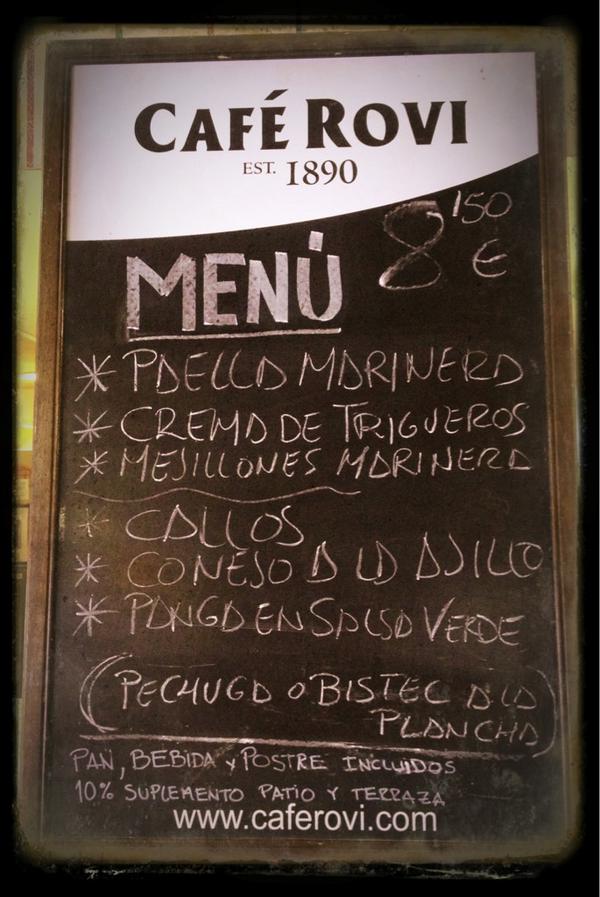 CAFÉ ROVI
EST. 1890
8'50
€
MENÚ
* PAELLA MARINERA
* CREMA DE TRIGUEROS
* MEJILLONES MARINERA
* CALLOS
* CONEJO A LA AJILLO
* PANGA EN SALSA VERDE
(PECHUGA O BISTEC A LA
PLANCHA)
PAN, BEBIDA y POSTRE INCLUIDOS
10% SUPLEMENTO PATIO Y TERRAZA
www.caferovi.com